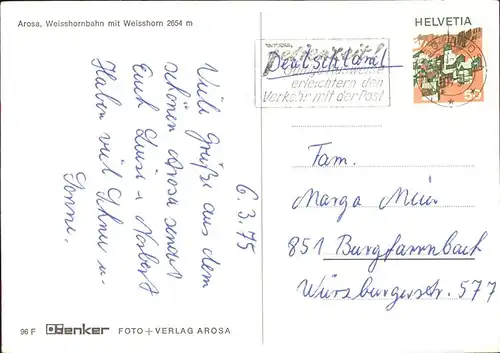 Arosa, Weisshornbahn mit Weisshorn 2654 m
HELVETIA
50
Deutschland
erleichtern den
Verkehr mit der Post
6.3.75
Viele Grüße aus dem
schönen Arosa sendet
Euch Luise + Norbert
Haben viel Schnee u.
Sonne.
Fam.
Marga
851 Burgfarrnbach
Würzburgerstr. 577
96 F Denker FOTO + VERLAG AROSA